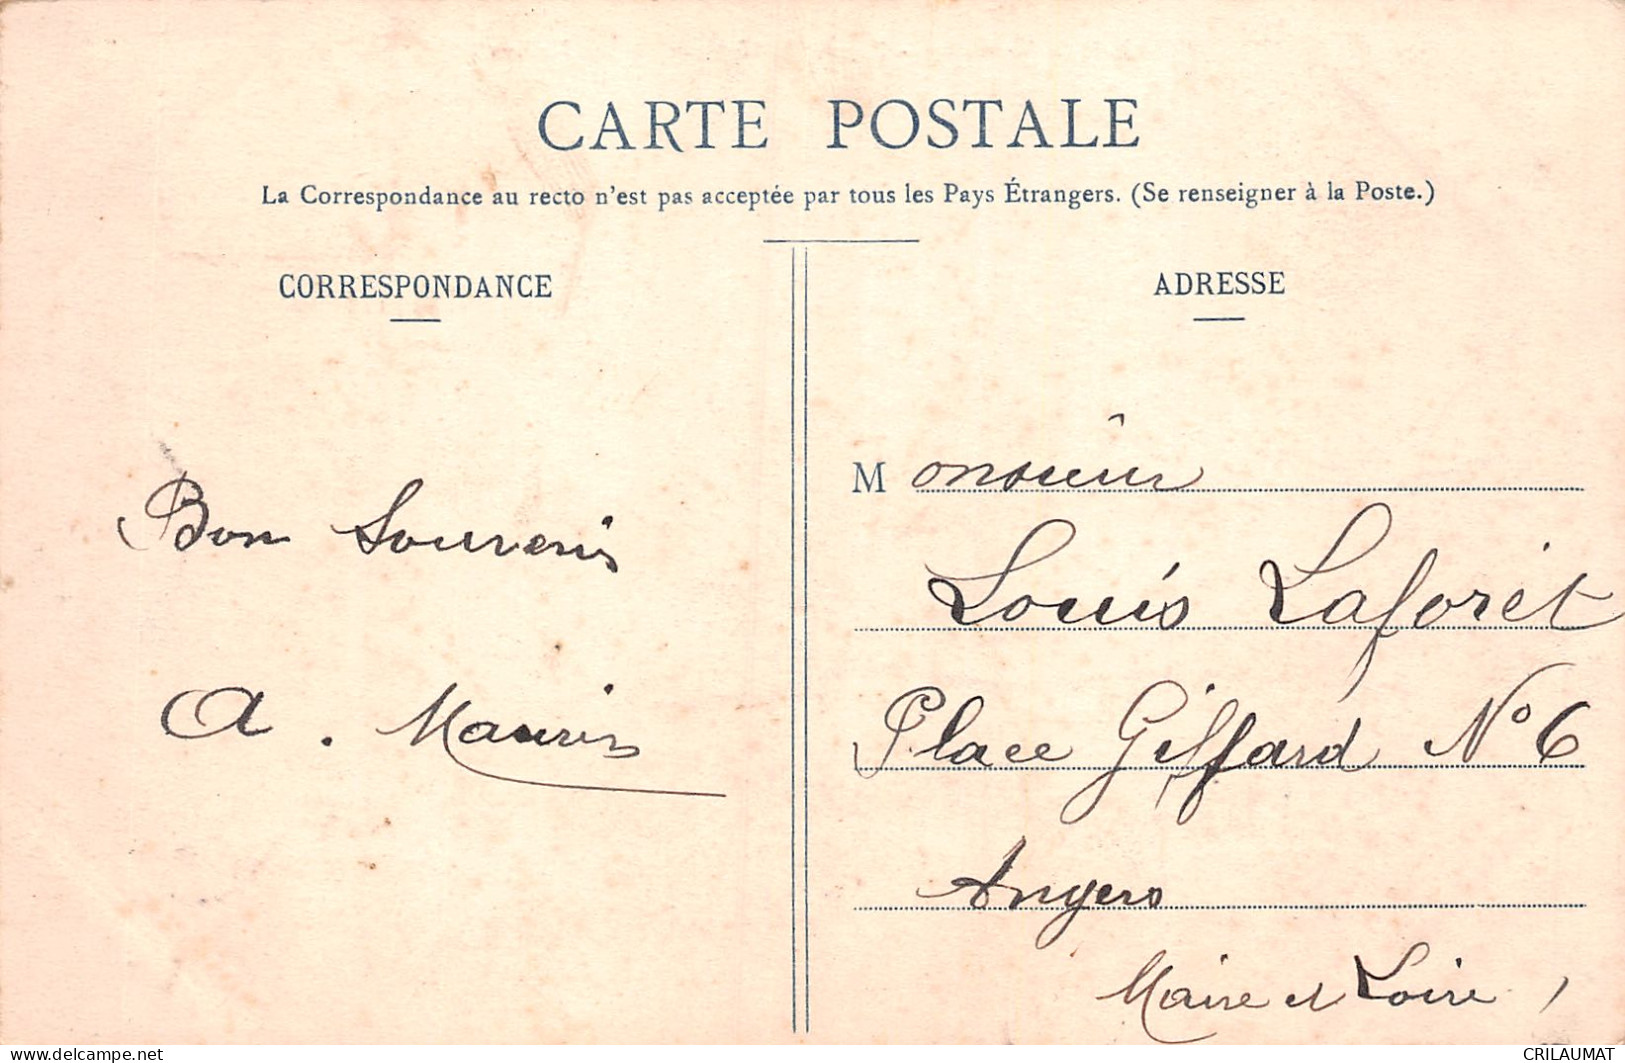 CARTE POSTALE
La Correspondance au recto n'est pas acceptée par tous les Pays Étrangers. (Se renseigner à la Poste.)
CORRESPONDANCE
Bon Souvenir
A.
ADRESSE
Monsieur
Louis Laforêt
Place Giffard N° 6
Angers
Maine et Loire
delcampe.net
CRILAUMAT